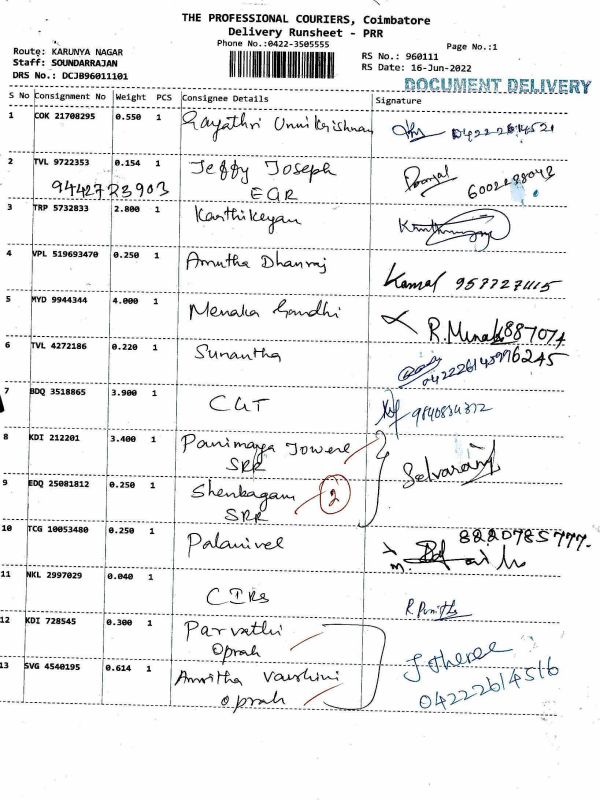 THE PROFESSIONAL COURIERS, Coimbatore
Delivery Runsheet - PRR
Phone No.:0422-3505555
Page No.:1
Route: KARUNYA NAGAR
Staff: SOUNDARRAJAN
DRS No.: DCJB96011101
RS No.: 960111
RS Date: 16-Jun-2022
DOCUMENT DELIVERY
S No Consignment No Weight PCS Consignee Details Signature
1 COK 21708295 0.550 1 Gayathri Unnikrishnan 04222614521
2 TVL 9722353 0.154 1 Jeffy Joseph
9442723903 EGR
3 TRP 5732833 2.800 1 Karthikeyan
4 VPL 519693470 0.250 1 Amutha Dhanraj Kamal 957727415
5 MYD 9944344 4.000 1 Menaka Gandhi R.Menak
6 TVL 4272186 0.220 1 Sunantha
7 BDQ 3518865 3.900 1 CGT 9840834372
8 KDI 212201 3.400 1 Panimaya Towers
SRR
Selvaraj
9 EDQ 25081812 0.250 1 Shenbagam 2
SRR
10 TCG 10053480 0.250 1 Palanivel 8220785777
11 NKL 2997029 0.040 1 CIRs R.Punitha
12 KDI 728545 0.300 1 Parvathi
Oprah
13 SVG 4540195 0.614 1 Amritha Varshini
Oprah
04222614516